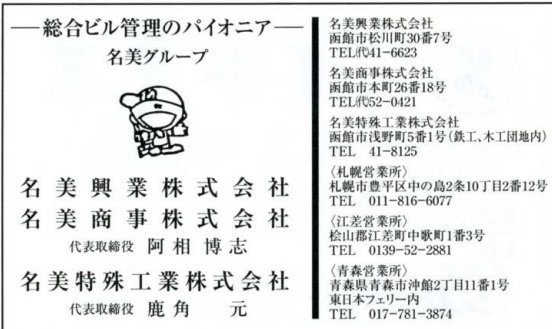 ―総合ビル管理のパイオニア―
名美グループ
名美興業株式会社
名美商事株式会社
代表取締役 阿相博志
名美特殊工業株式会社
代表取締役 鹿角 元
名美興業株式会社
函館市松川町30番7号
TEL㈹41-6623
名美商事株式会社
函館市本町26番18号
TEL㈹52-0421
名美特殊工業株式会社
函館市浅野町5番1号(鉄工、木工団地内)
TEL 41-8125
〈札幌営業所〉
札幌市豊平区中の島2条10丁目2番12号
TEL 011-816-6077
〈江差営業所〉
桧山郡江差町中歌町1番3号
TEL 0139-52-2881
〈青森営業所〉
青森県青森市沖館2丁目11番1号
東日本フェリー内
TEL 017-781-3874